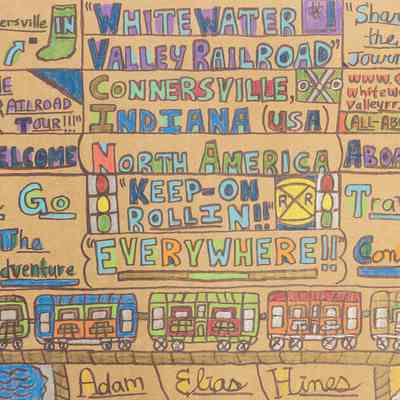 ersville IN
"WHITEWATER #1
VALLEY RAILROAD"
CONNERSVILLE,
INDIANA (USA)
NORTH AMERICA
"KEEP-ON
ROLLIN!!"
R R
"EVERYWHERE!!"
E
RAILROAD
TOUR!!!"
ELCOME
Go
The
dventure
"Shar
the
Journ
www.
whitew
valleyrr.
(ALL-ABO
ABOA
Tra
Con
Adam Elias Hines